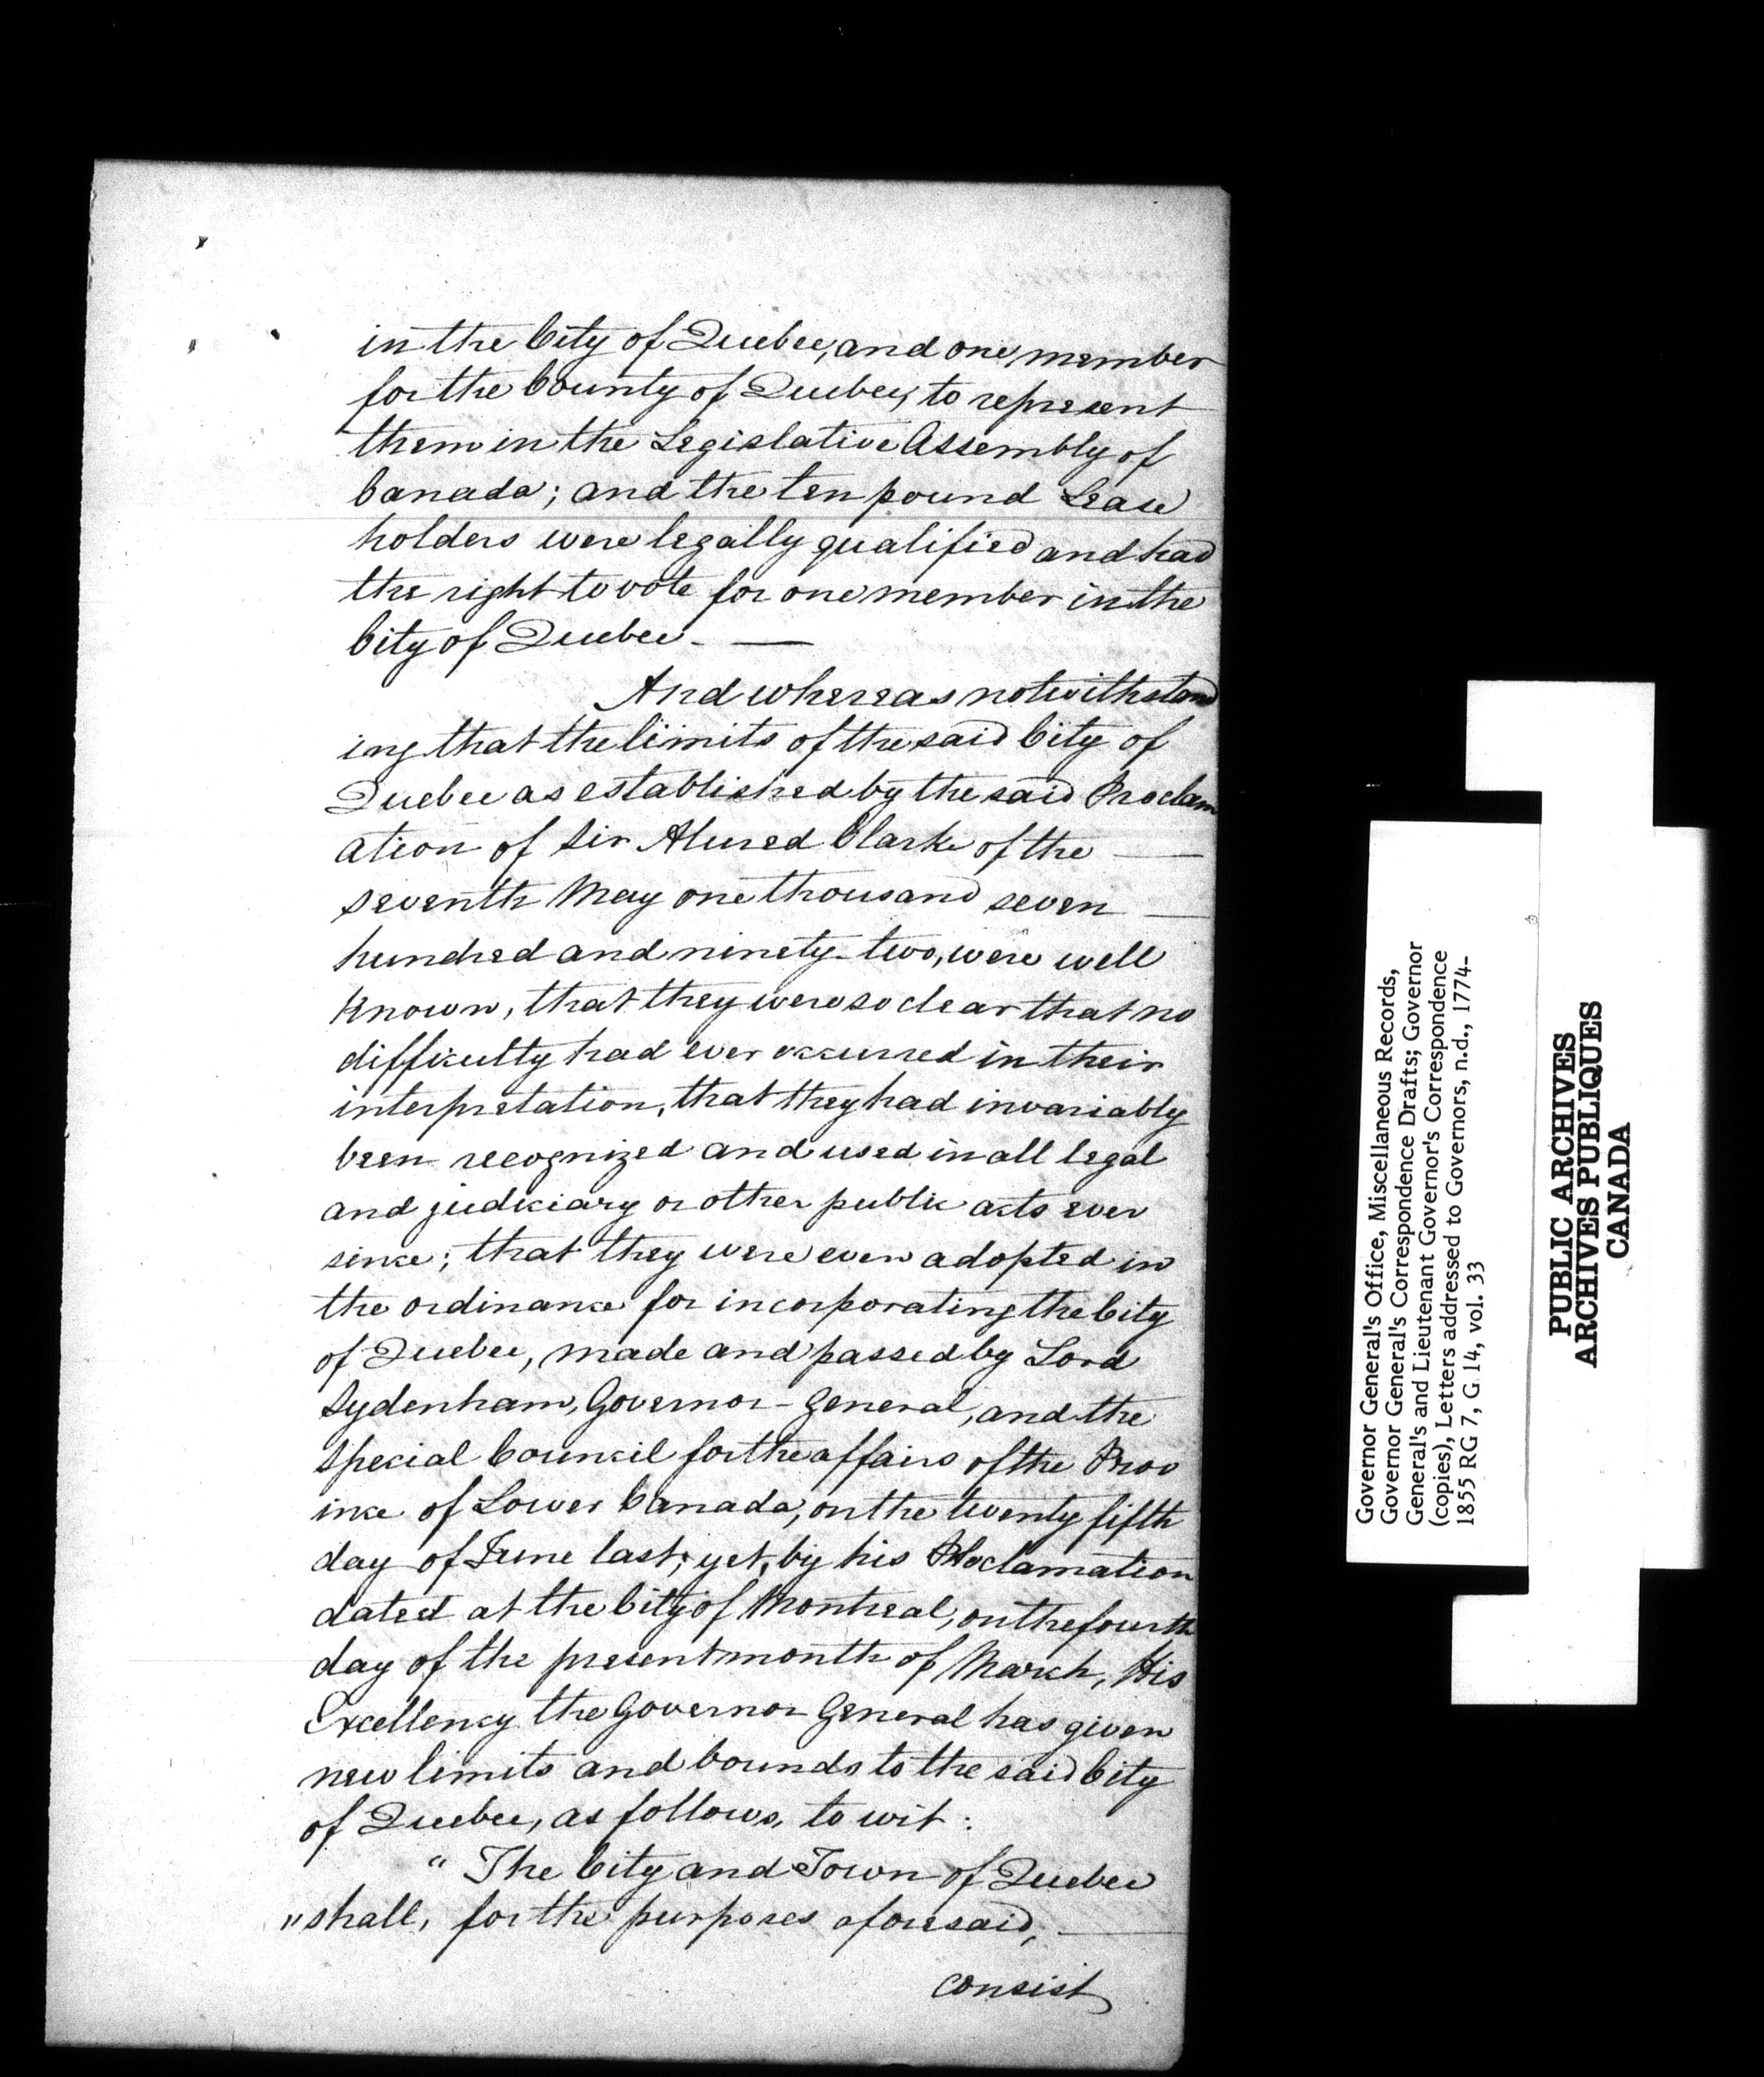 in the City of Quebec, and one member
for the County of Quebec, to represent
them in the Legislative Assembly of
Canada; and the ten pound Lease
holders were legally qualified and had
the right to vote for one member in the
City of Quebec. —
And whereas notwithstand
ing that the limits of the said City of
Quebec as established by the said Proclam
ation of Sir Alured Clark of the —
seventh May one thousand seven —
hundred and ninety-two, were well
known, that they were so clear that no
difficulty had ever occurred in their
interpretation, that they had invariably
been recognized and used in all legal
and judiciary or other public acts ever
since; that they were even adopted in
the ordinance for incorporating the City
of Quebec, made and passed by Lord
Sydenham, Governor-General, and the
Special Council for the affairs of the Prov
ince of Lower Canada, on the twenty fifth
day of June last; yet, by his Proclamation
dated at the City of Montreal, on the fourth
day of the present month of March, His
Excellency the Governor General has given
new limits and bounds to the said City
of Quebec, as follows, to wit:
" The City and Town of Quebec
" shall, for the purposes aforesaid, —
consist
Governor General's Office, Miscellaneous Records,
Governor General's Correspondence Drafts; Governor
General's and Lieutenant Governor's Correspondence
(copies), Letters addressed to Governors, n.d., 1774-
1855 RG 7, G 14, vol. 33
PUBLIC ARCHIVES
ARCHIVES PUBLIQUES
CANADA